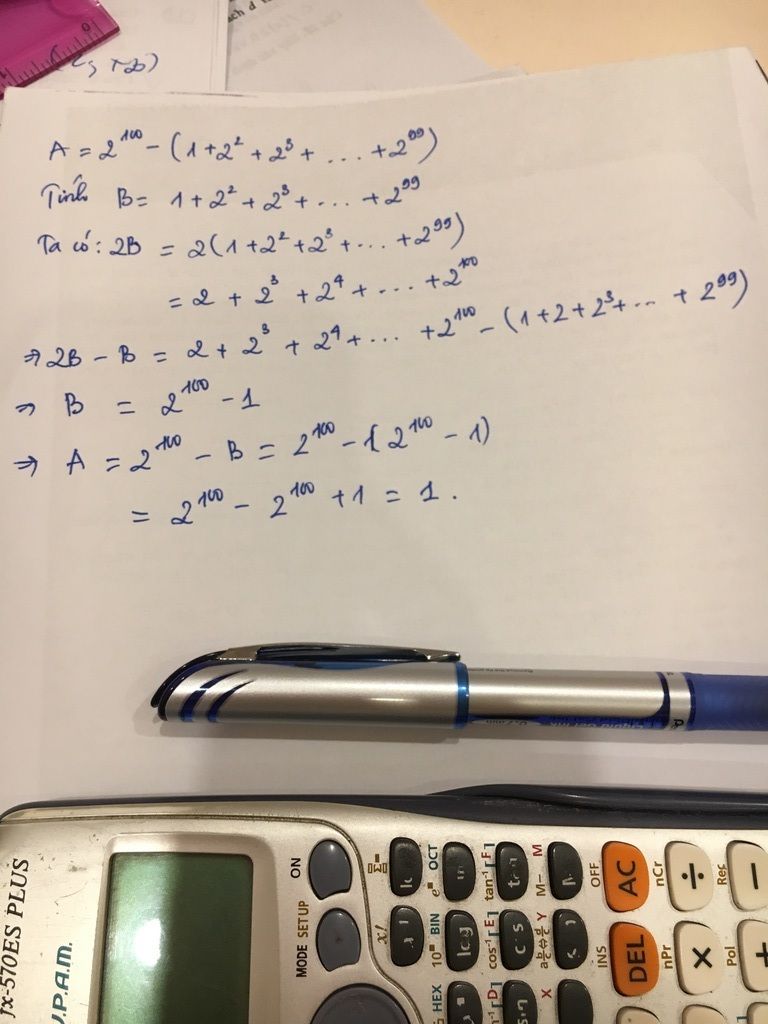 ach d
(2, 72)
A = 2^100 - (1 + 2^2 + 2^3 + ... + 2^99)
Tính B = 1 + 2^2 + 2^3 + ... + 2^99
Ta có: 2B = 2(1 + 2^2 + 2^3 + ... + 2^99)
= 2 + 2^3 + 2^4 + ... + 2^100
⇒ 2B - B = 2 + 2^3 + 2^4 + ... + 2^100 - (1 + 2 + 2^3 + ... + 2^99)
⇒ B = 2^100 - 1
⇒ A = 2^100 - B = 2^100 - (2^100 - 1)
= 2^100 - 2^100 + 1 = 1.
fx-570ES PLUS
V.P.A.M.
ON
MODE SETUP
OCT
M-
M
OFF
AC
nCr
÷
Rec
−
x!
10^x BIN
log
cos⁻¹ [E]
cos
Y
INS
DEL
nPr
×
Pol
+
HEX
[D]
X